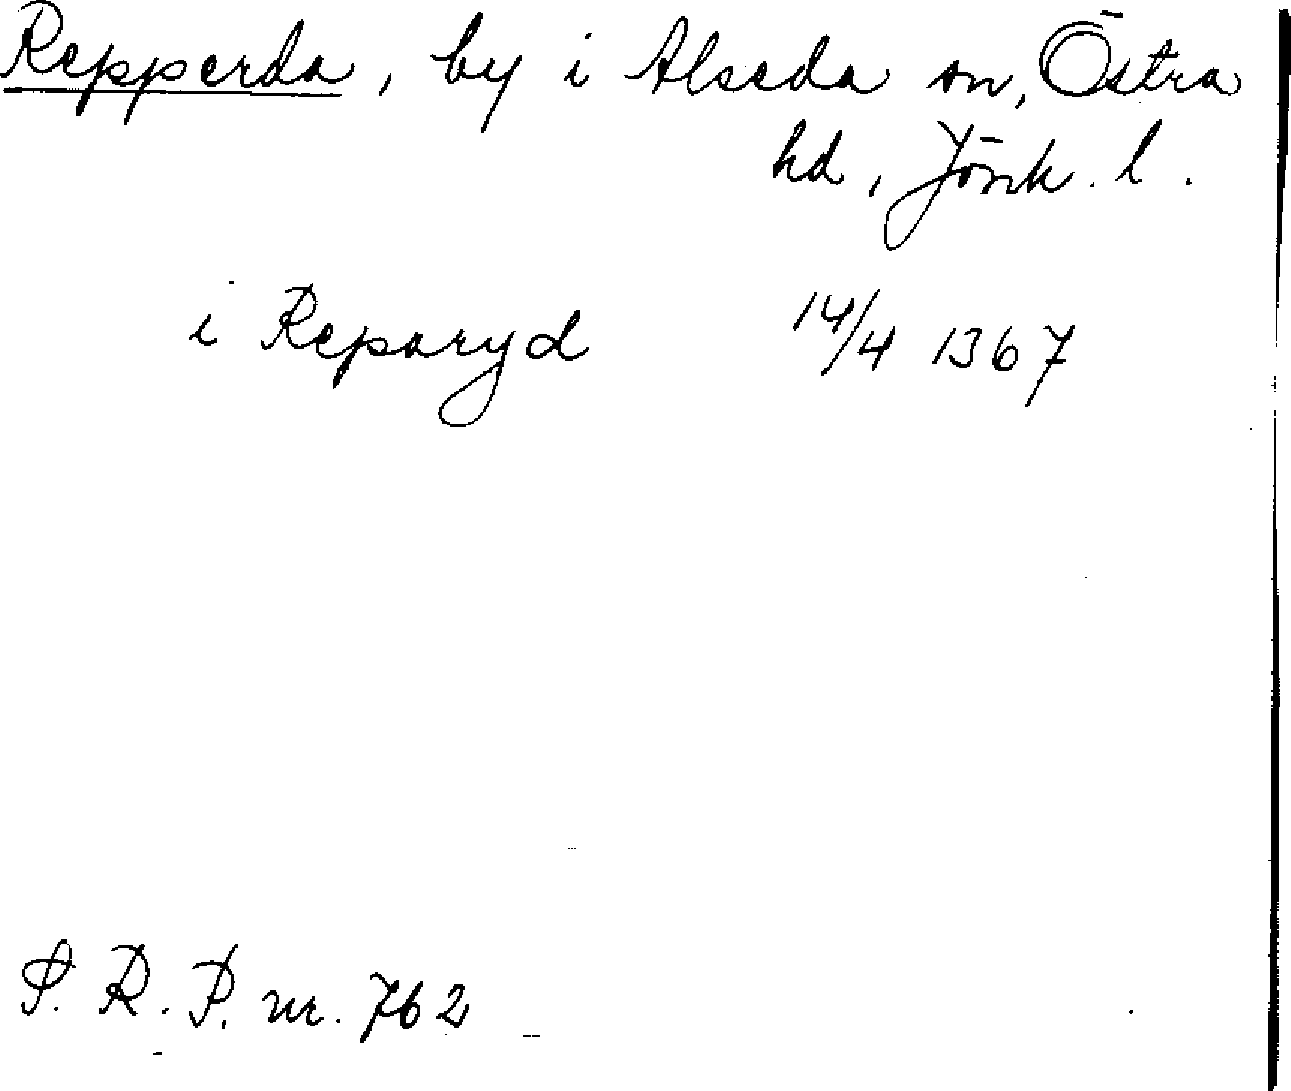 Repperda, by i Alseda sn, Östra
hd, Jönk. l.
i Reparyd 14/4 1367
S. R. P. nr. 762